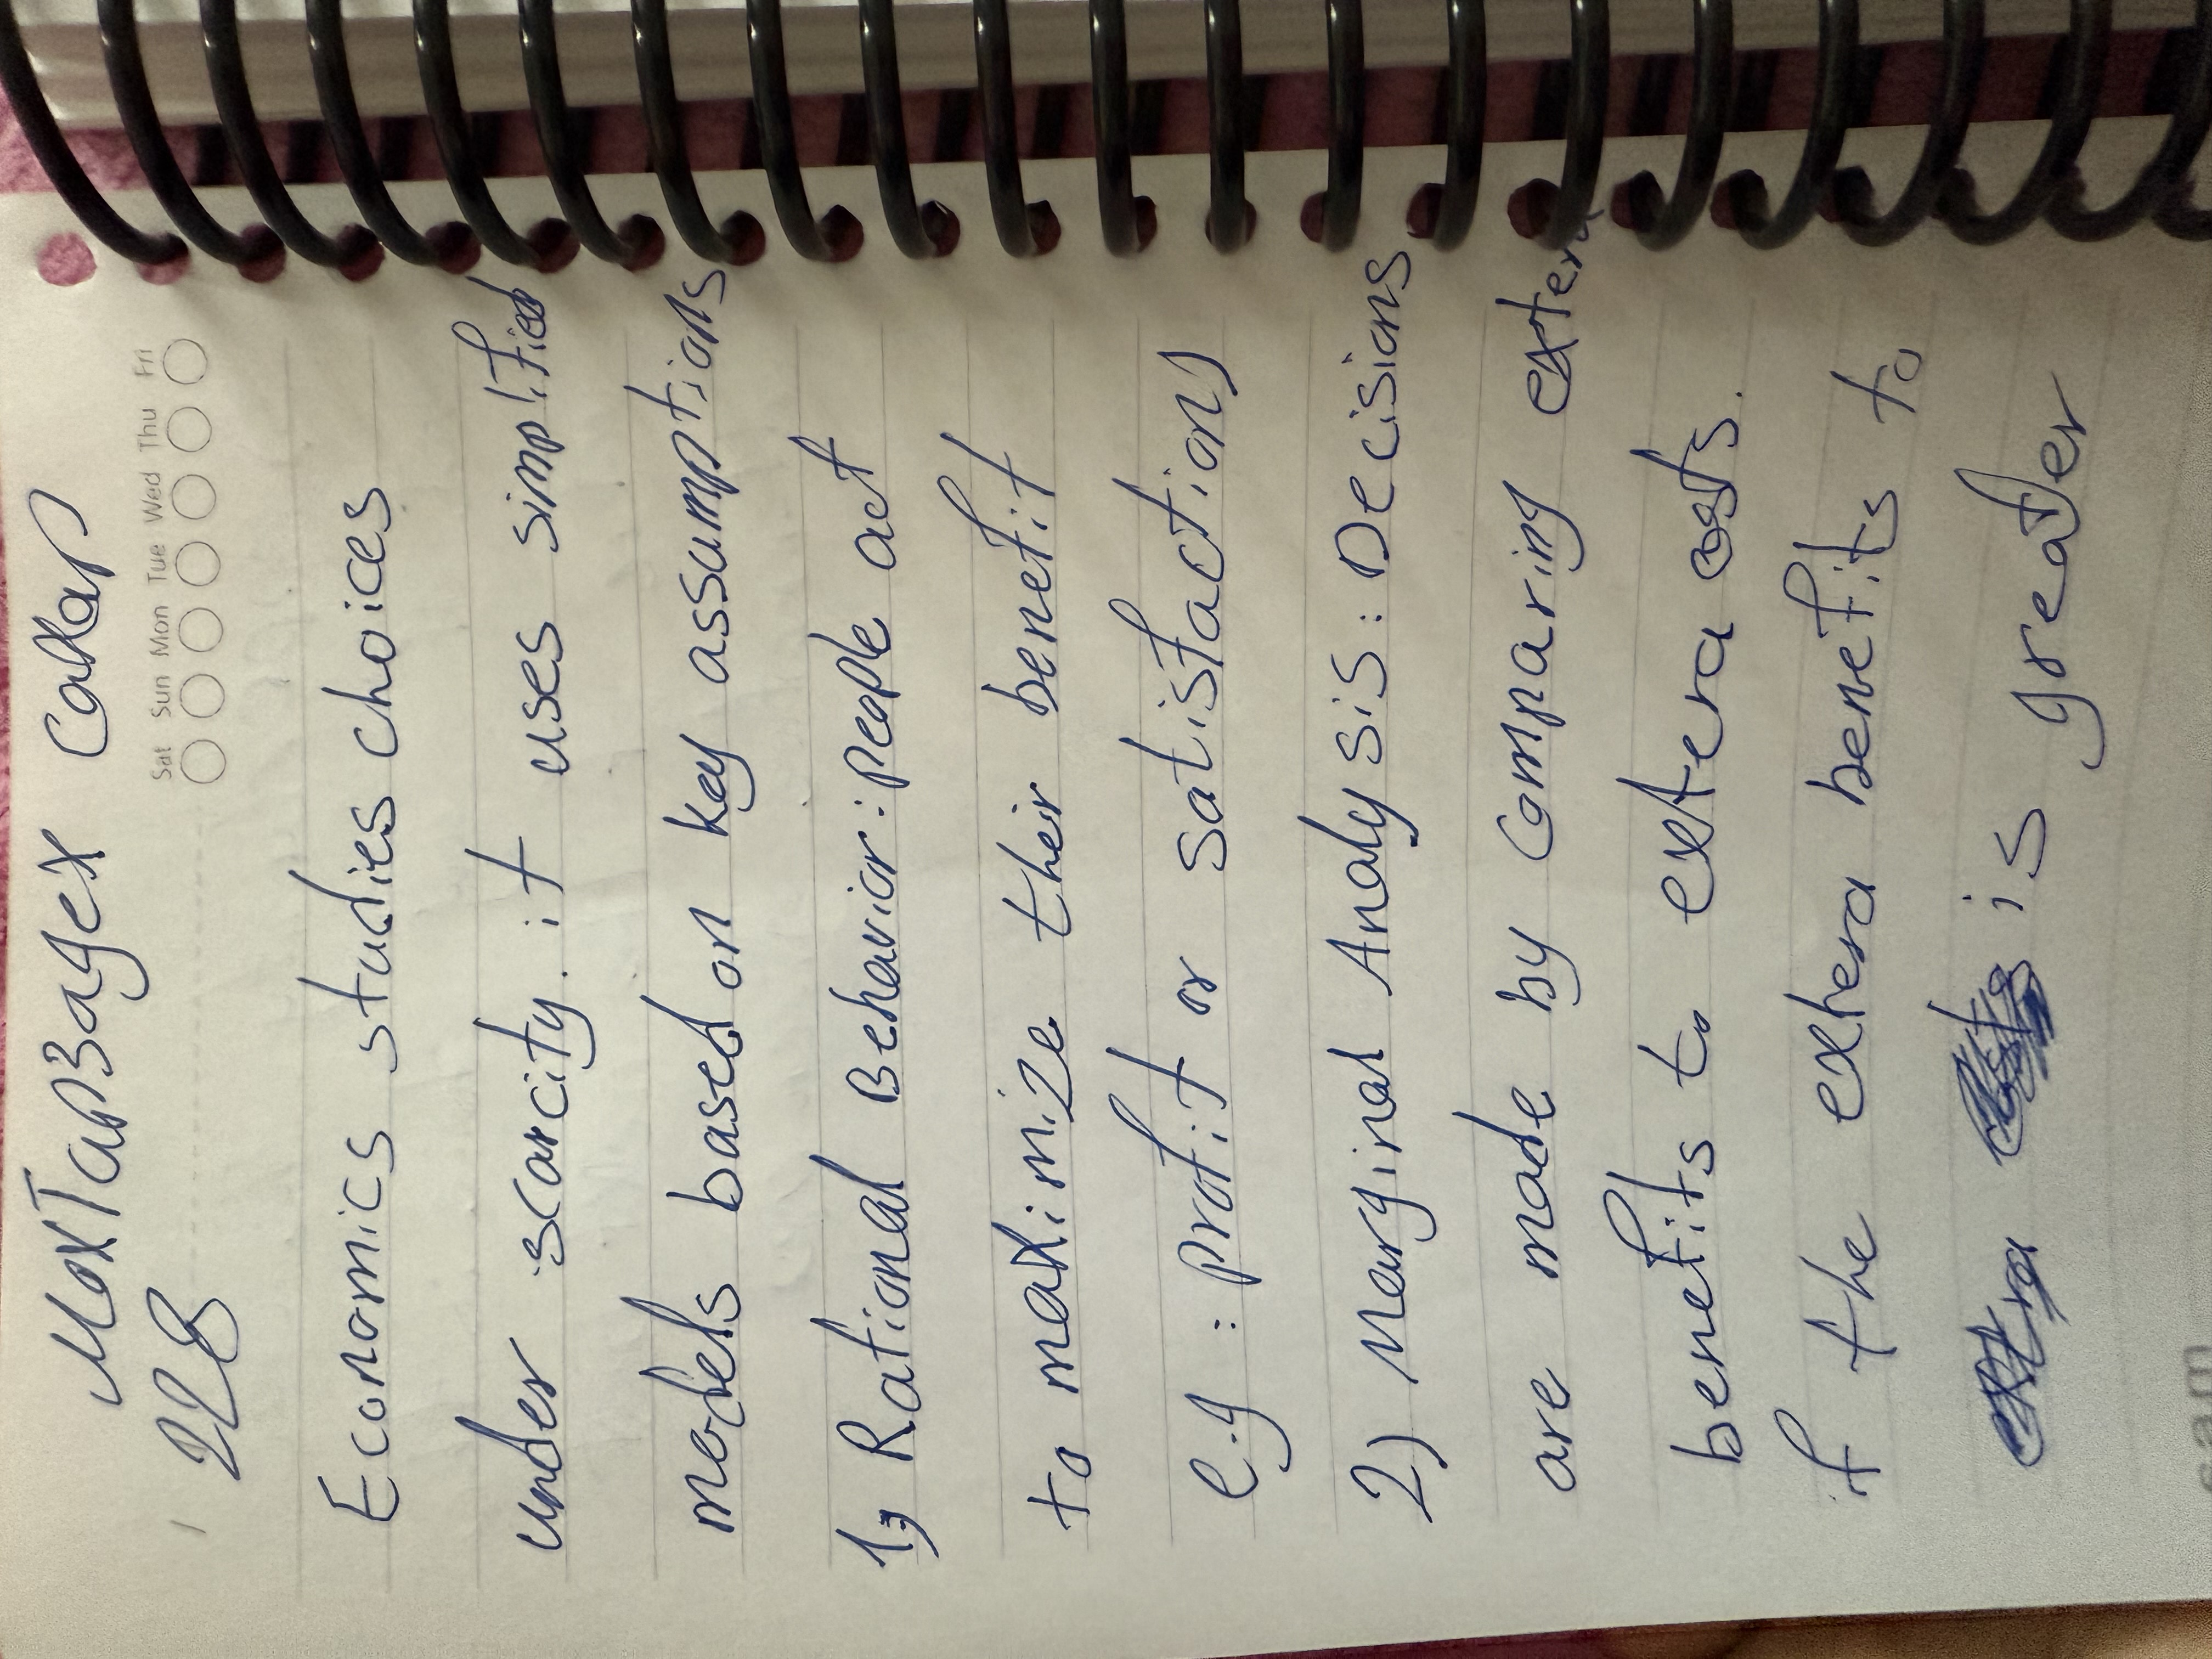 МохТаВЗадех Сахар
Sat Sun Mon Tue Wed Thu Fri
228
Economics studies choices
under scarcity. it uses simplified
models based on key assumptions
1) Rational Behavior: people act
to maximize their benefit
e.g : profit or satisfaction)
2) Marginal Analysis: Decisions
are made by comparing extera
benefits to extera costs.
if the exhera benefits to
is greater